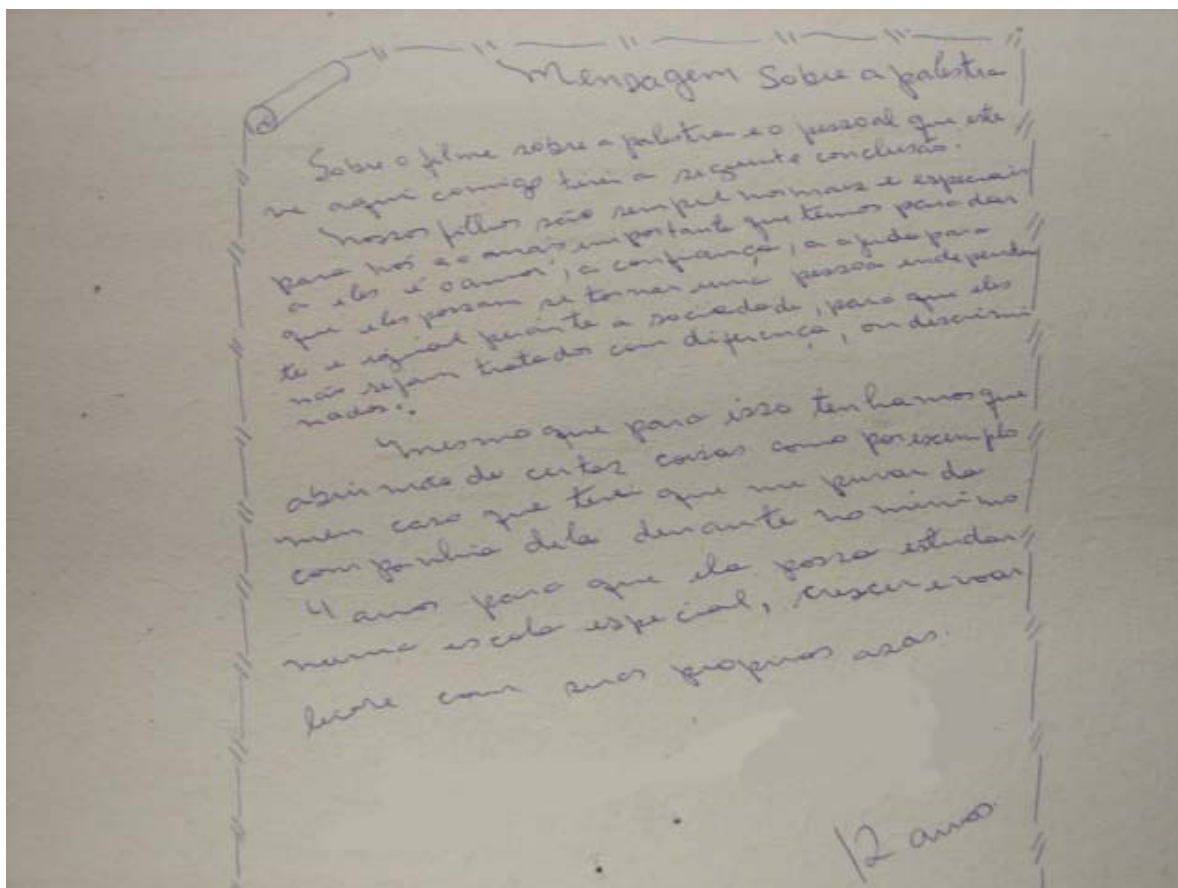 Mensagem Sobre a palestra
Sobre o filme sobre a palestra e o pessoal que este
ve aqui comigo tirei a seguinte conclusão.
Nossos filhos são sempre normais e especiais
para nós e o mais importante que temos para dar
a eles é o amor, a confiança, a ajuda para
que eles possam se tornar uma pessoa independen
te e igual perante a sociedade, para que eles
não sejam tratados com diferença, ou descrimi
nados.
Mesmo que para isso tenhamos que
abrir mão de certas coisas como por exemplo
meu caso que terei que me privar da
companhia dela durante no mínimo
4 anos para que ela possa estudar
numa escola especial, crescer e voar
livre com suas proprias asas.
12 anos